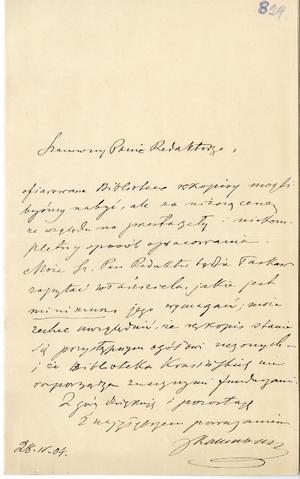 829.
Szanowny Panie Redaktorze,
ofiarowane Bibliotece rękopisy mogli-
byśmy nabyć, ale za niższą cenę
ze względu na przestarzały i niekom-
pletny sposób opracowania.
Może Sz. Pan Redaktor będzie łaskaw
zapytać właściciela, jakie jest
minimum jego wymagań; może
zechce uwzględnić, że rękopis stanie
się przystępnym ogółowi uczonych
i że Biblioteka Krasińskich nie
rozporządza znacznymi funduszami.
Z góry dziękuję i pozostaję
Z najgłębszem poważaniem
28.IV.04.